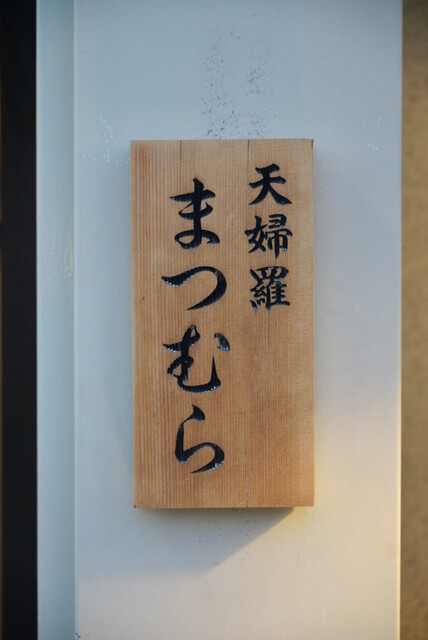 天婦羅
まつむら